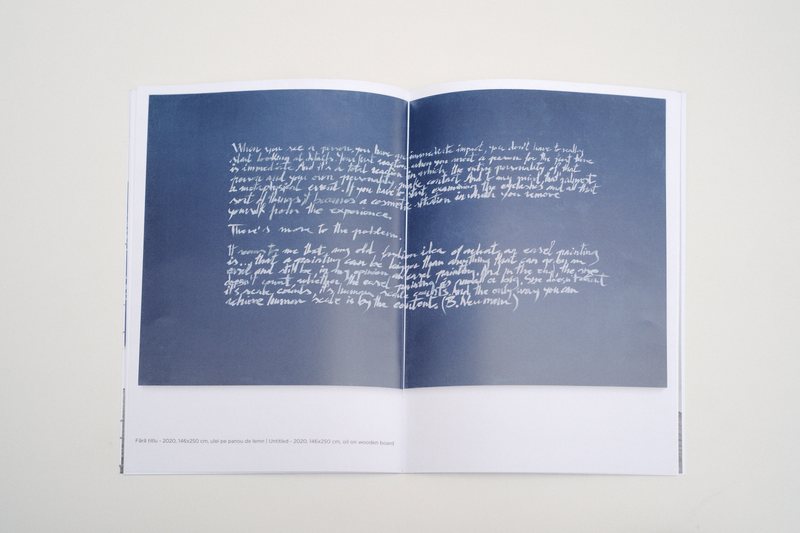 When you see a person you have an immediate impact, you don't have to really
start looking at details. Your first reaction when you meet a person for the first time
is immediate. And it's a total reaction in which the entire personality of that
person and your own personality make contact. And to my mind that's almost
a metaphysical event. If you have to start examining the eyelashes and all that
sort of things, it becomes a cosmetic situation in which you remove
yourself from the experience.
There's more to the problem.
It seems to me that any old fashion idea of what an easel painting
is... that a painting can be larger than anything that can go by an
easel and still be, in my opinion an easel painting. And in the end, the size
doesn't count, whether the easel painting is small or big. Size doesn't count
it's scale counts, it's human scale counts and the only way you can
achieve human scale is by the content. (B. Neumann)
Fără titlu - 2020, 146x250 cm, ulei pe panou de lemn | Untitled - 2020, 146x250 cm, oil on wooden board